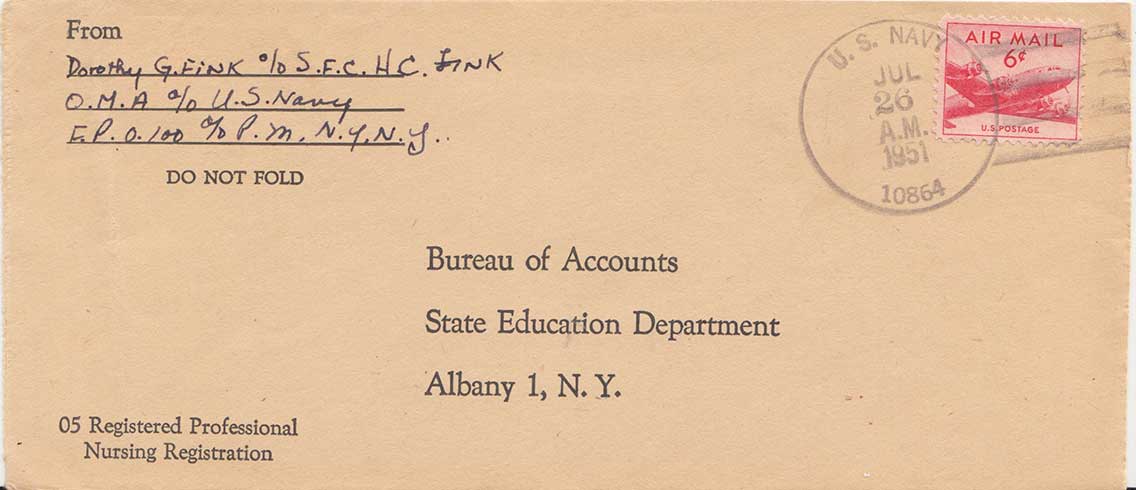 From
Dorothy G. Fink % S.F.C. H C. Fink
O.M.A % U.S. Navy
F.P.O. 100 % P.M. N.Y, N.Y..
DO NOT FOLD
U. S. NAVY
JUL
26
A.M.
1951
10864
AIR MAIL
6¢
U.S. POSTAGE
Bureau of Accounts
State Education Department
Albany 1, N. Y.
05 Registered Professional
Nursing Registration